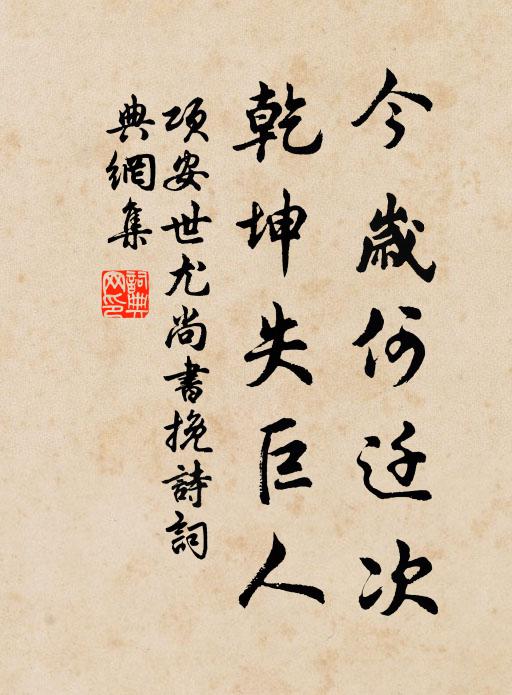 今歲何迁次
乾坤失巨人
項安世尤尚書挽詩詞
典網集
詞典
网印